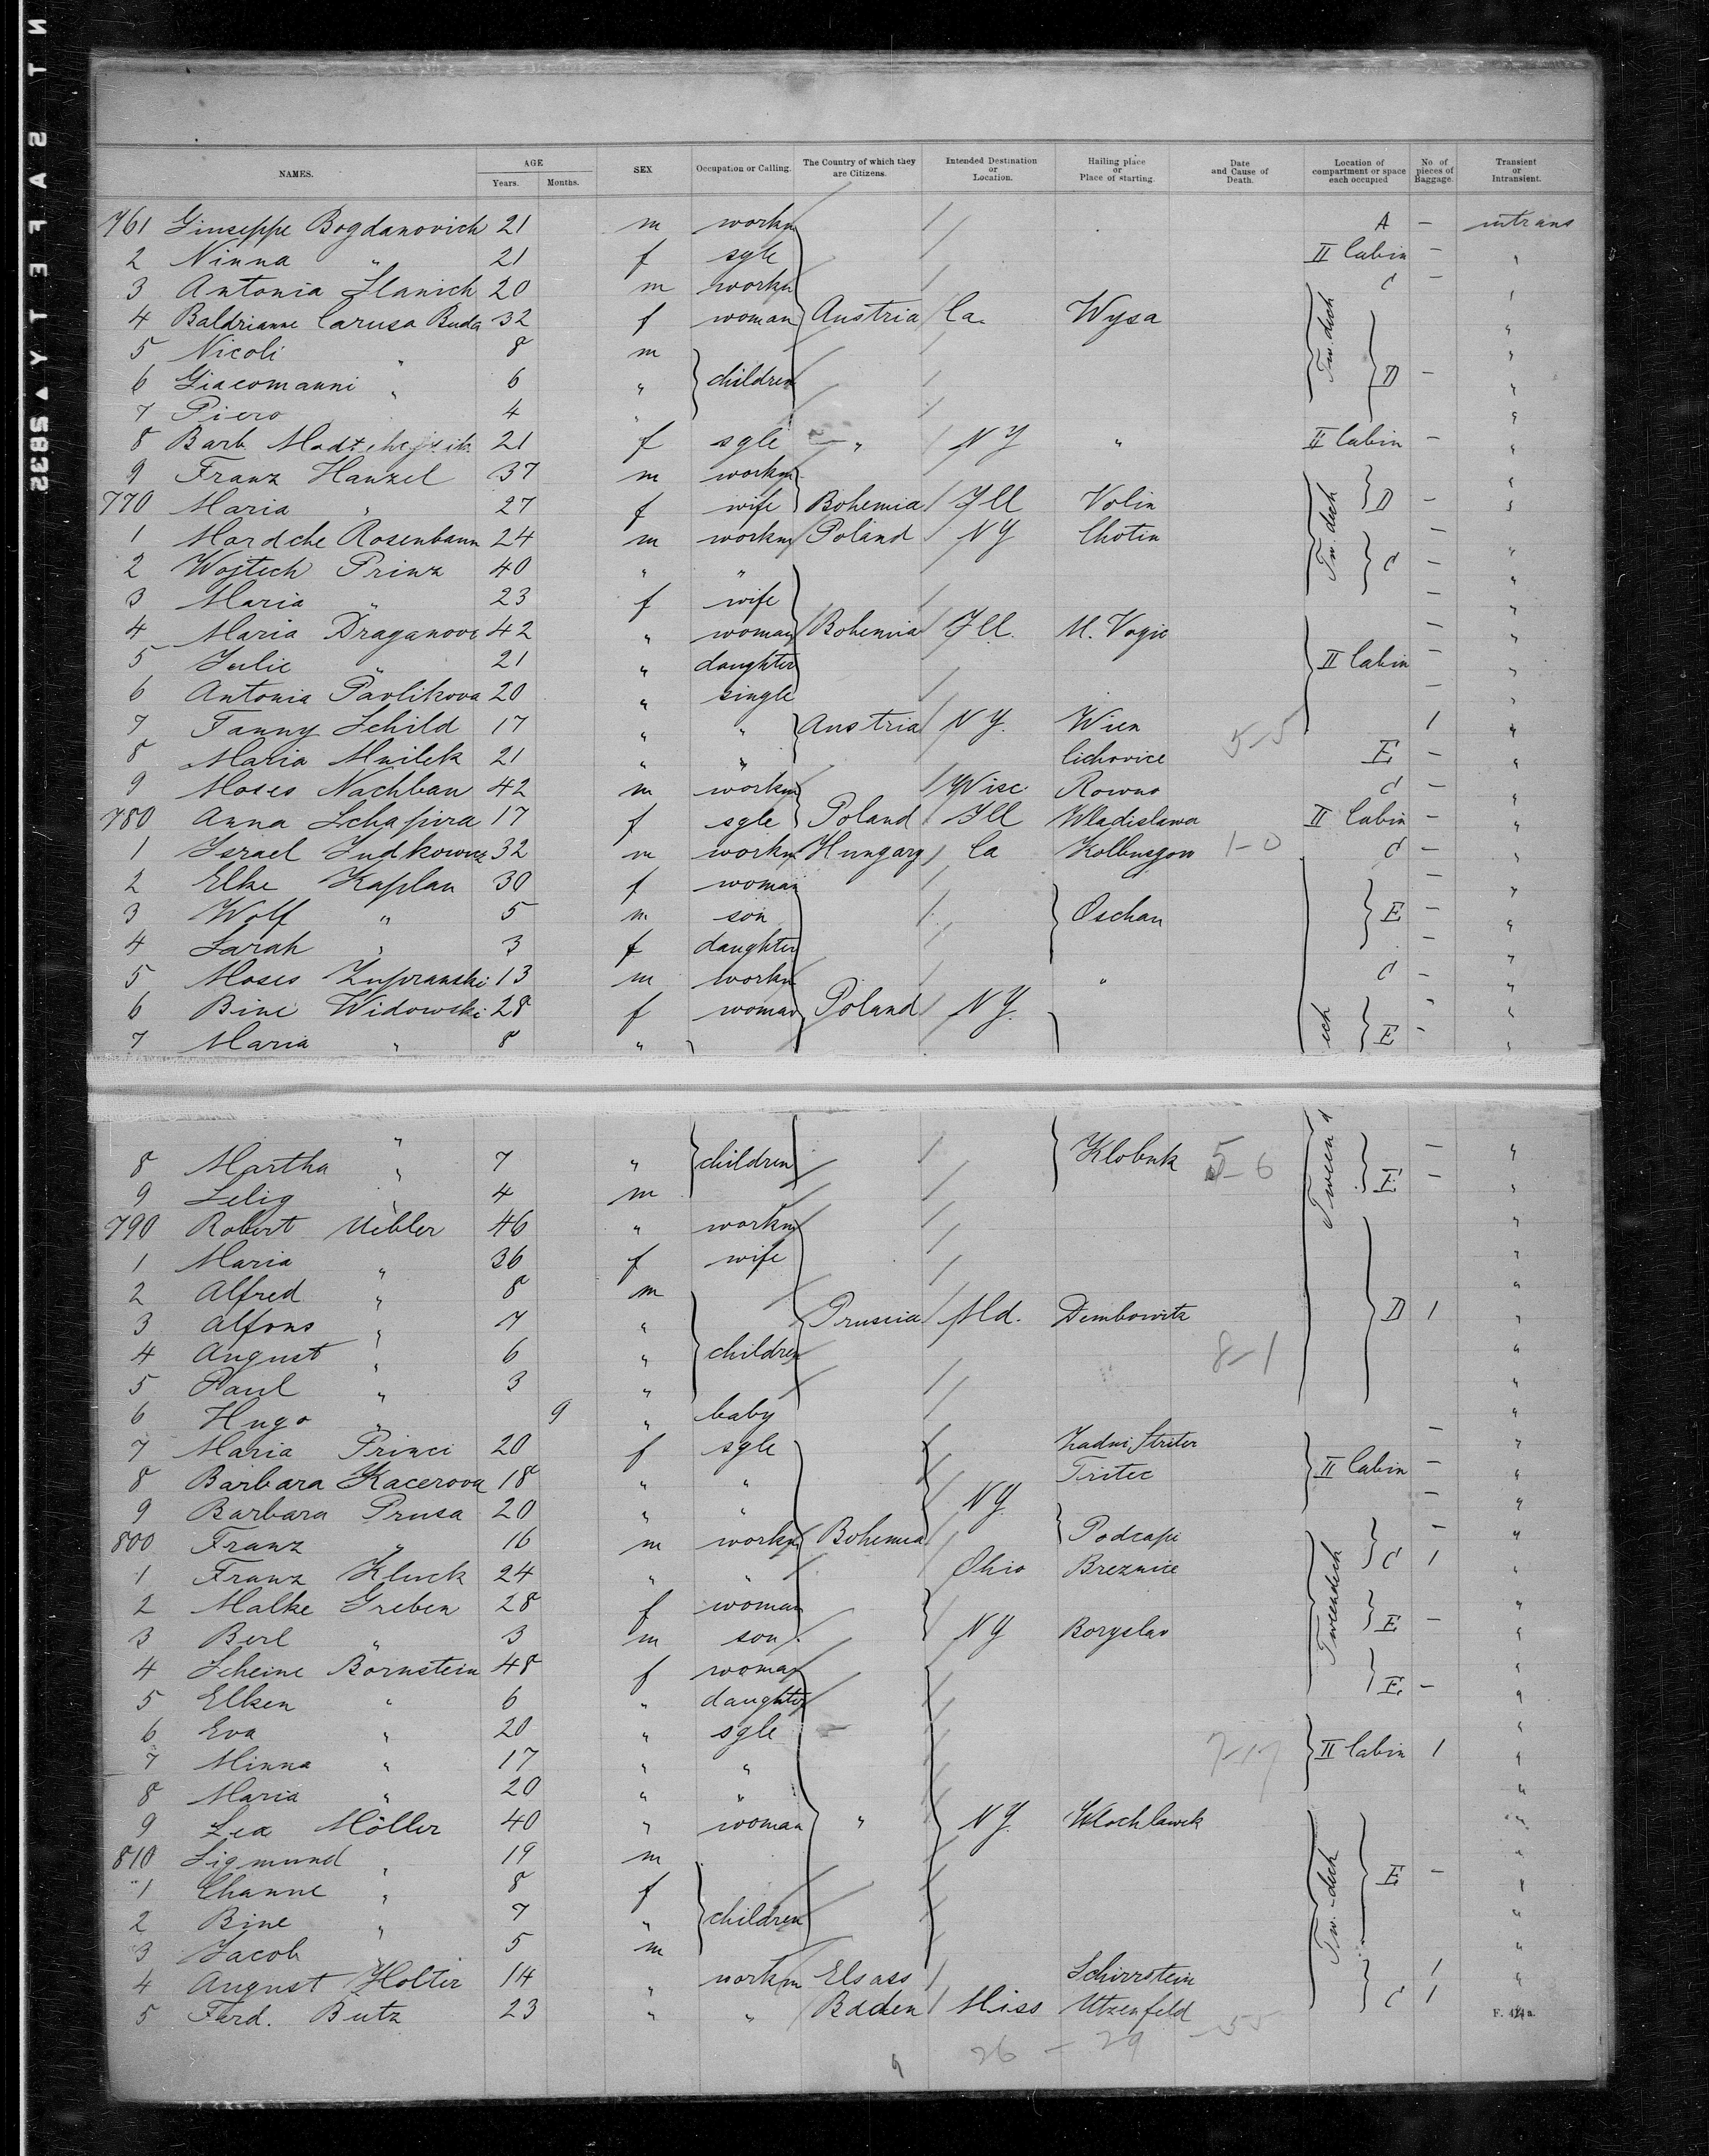 SAFETY▲5832
NAMES. AGE Years. Months. SEX Occupation or Calling. The Country of which they are Citizens. Intended Destination or Location. Hailing place or Place of starting. Date and Cause of Death. Location of compartment or space each occupied No of pieces of Baggage. Transient or Intransient.
761 Giuseppe Bogdanovich 21 m workm A — intrans
2 Ninna " 21 f sgle II Cabin — "
3 Antonia Slanich 20 m workm C — "
4 Baldrianne Carusa Buda 32 f woman Austria Ca. Wysa Tw. deck "
5 Nicoli " 8 m "
6 Giacomanni " 6 " children D — "
7 Piero 4 " "
8 Barb. 21 f sgle " N Y " II Cabin — "
9 Franz Hanzel 37 m workm "
770 Maria " 27 f wife Bohemia Ill Volin Tw. deck D — "
1 Mordche Rosenbaum 24 m workm Poland N Y Chotin —
2 Wojtech Prinz 40 " " C — "
3 Maria " 23 f wife — "
4 Maria Draganova 42 " woman Bohemia Ill. M. Vogic — "
5 Julie " 21 " daughter II Cabin — "
6 Antonia Pavlikova 20 " single — "
7 Fanny Schild 17 " " Austria N Y. Wien 5-5 1 "
8 Maria Mnilek 21 " " Cichovice E — "
9 Moses Nachban 42 m workm Wisc Rowno C — "
780 Anna Schapira 17 f sgle Poland Ill Wladislawa II Cabin — "
1 Israel Judkowicz 32 m workm Hungary Ca Kolbuszow 1-0 C — "
2 Elke Kaplan 30 f woman — "
3 Wolf " 5 m son Oschan E — "
4 Sarah " 3 f daughter — "
5 Moses Zupranski 13 m workm " C — "
6 Bine Widowski 28 f woman Poland N Y. — "
7 Maria " 8 " eck E — "
8 Martha " 7 " children Klobuk 5-6 Tween d — "
9 Selig " 4 m E — "
790 Robert Uebler 46 " workm "
1 Maria " 36 f wife "
2 Alfred " 8 m "
3 Alfons " 7 " Prussia Md. Dembowitz D 1 "
4 August " 6 " children 8-1 "
5 Paul " 3 " "
6 Hugo " 9 " baby "
7 Maria Princi 20 f sgle Zadni Striter — "
8 Barbara Kacerova 18 " " Tritec II Cabin — "
9 Barbara Prusa 20 " " N Y — "
800 Franz " 16 m workm Bohemia Podcapi — "
1 Franz Kluck 24 " " Ohio Breznice Tweendeck C 1 "
2 Malke Greben 28 f woman "
3 Berl " 3 m son N Y Boryslav E — "
4 Scheine Bornstein 48 f woman "
5 Elken " 6 " daughter E — "
6 Eva " 20 " sgle "
7 Minna " 17 " " 7-17 II Cabin 1 "
8 Maria " 20 " " "
9 Lea Möller 40 " woman " N Y. Wlochlawek "
810 Sigmund " 19 m "
1 Channe " 8 f Tw. deck E — "
2 Bine " 7 " children "
3 Jacob " 5 m "
4 August Holter 14 " workm Elsass Schirrstein 1 "
5 Ferd. Butz 23 " " Baden Miss Utzenfeld C 1 "
F. 424a.
26 — 29 -55